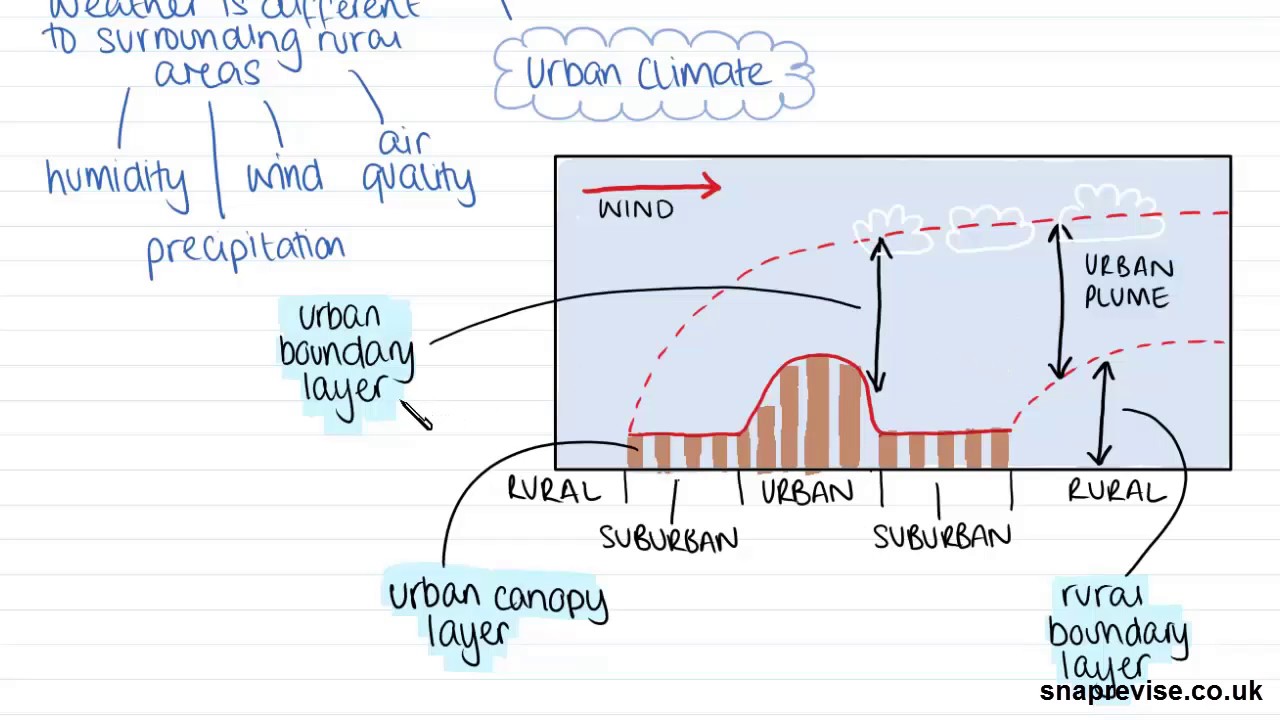 weather is different
to surrounding rural
areas
humidity
wind
air
quality
precipitation
Urban Climate
WIND
URBAN
PLUME
urban
boundary
layer
RURAL
URBAN
RURAL
SUBURBAN
SUBURBAN
urban canopy
layer
rural
boundary
layer
snaprevise.co.uk